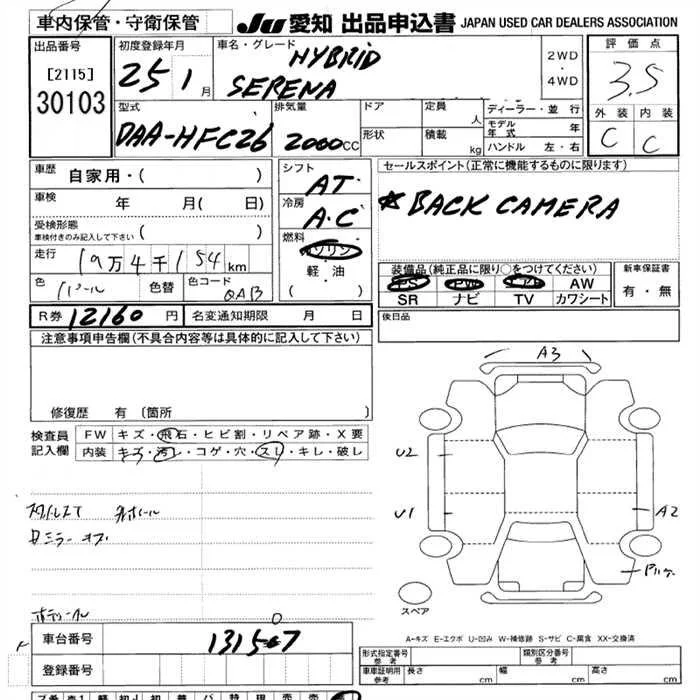 車内保管・守衛保管 JU 愛知 出品申込書 JAPAN USED CAR DEALERS ASSOCIATION
出品番号 初度登録年月 車名・グレード HYBRID 2WD 評価点
[2115] 25 1月 SERENA ・ 4WD 3.5
30103 型式 排気量 ドア 定員 人 ディーラー・並行 外装 内装
DAA-HFC26 2000CC 形状 積載 kg モデル年式 年 C C
ハンドル 左・右
車歴 自家用・( ) シフト AT セールスポイント(正常に機能するものに限ります)
車検 年 月( 日) 冷房 A.C ★BACK CAMERA
受検形態
車検付きのみ記入して下さい ( ) 燃料 ガソリン
走行 19万4千154km 軽・油 装備品(純正品に限り○をつけてください) 新車保証書
色 パール 色替 色コード QAB ( ) PS PW エアB AW 有・無
SR ナビ TV カワシート
R券 12160円 名変通知期限 月 日 後日品
注意事項申告欄(不具合内容等は具体的に記入して下さい)
A3
修復歴 有 (箇所
検査員 FW キズ・飛石・ヒビ割・リペア跡・X要
記入欄 内装 キズ・汚レ・コゲ・穴・スレ・キレ・破レ
U2
U1 A2
スペア
A-キズ E-エクボ U-凹み W-補修跡 S-サビ C-腐食 XX-交換済
車台番号 131507
登録番号
形式指定番号 参考 類別区分番号 参考
車庫証明用 参考 長さ cm 幅 cm 高さ cm